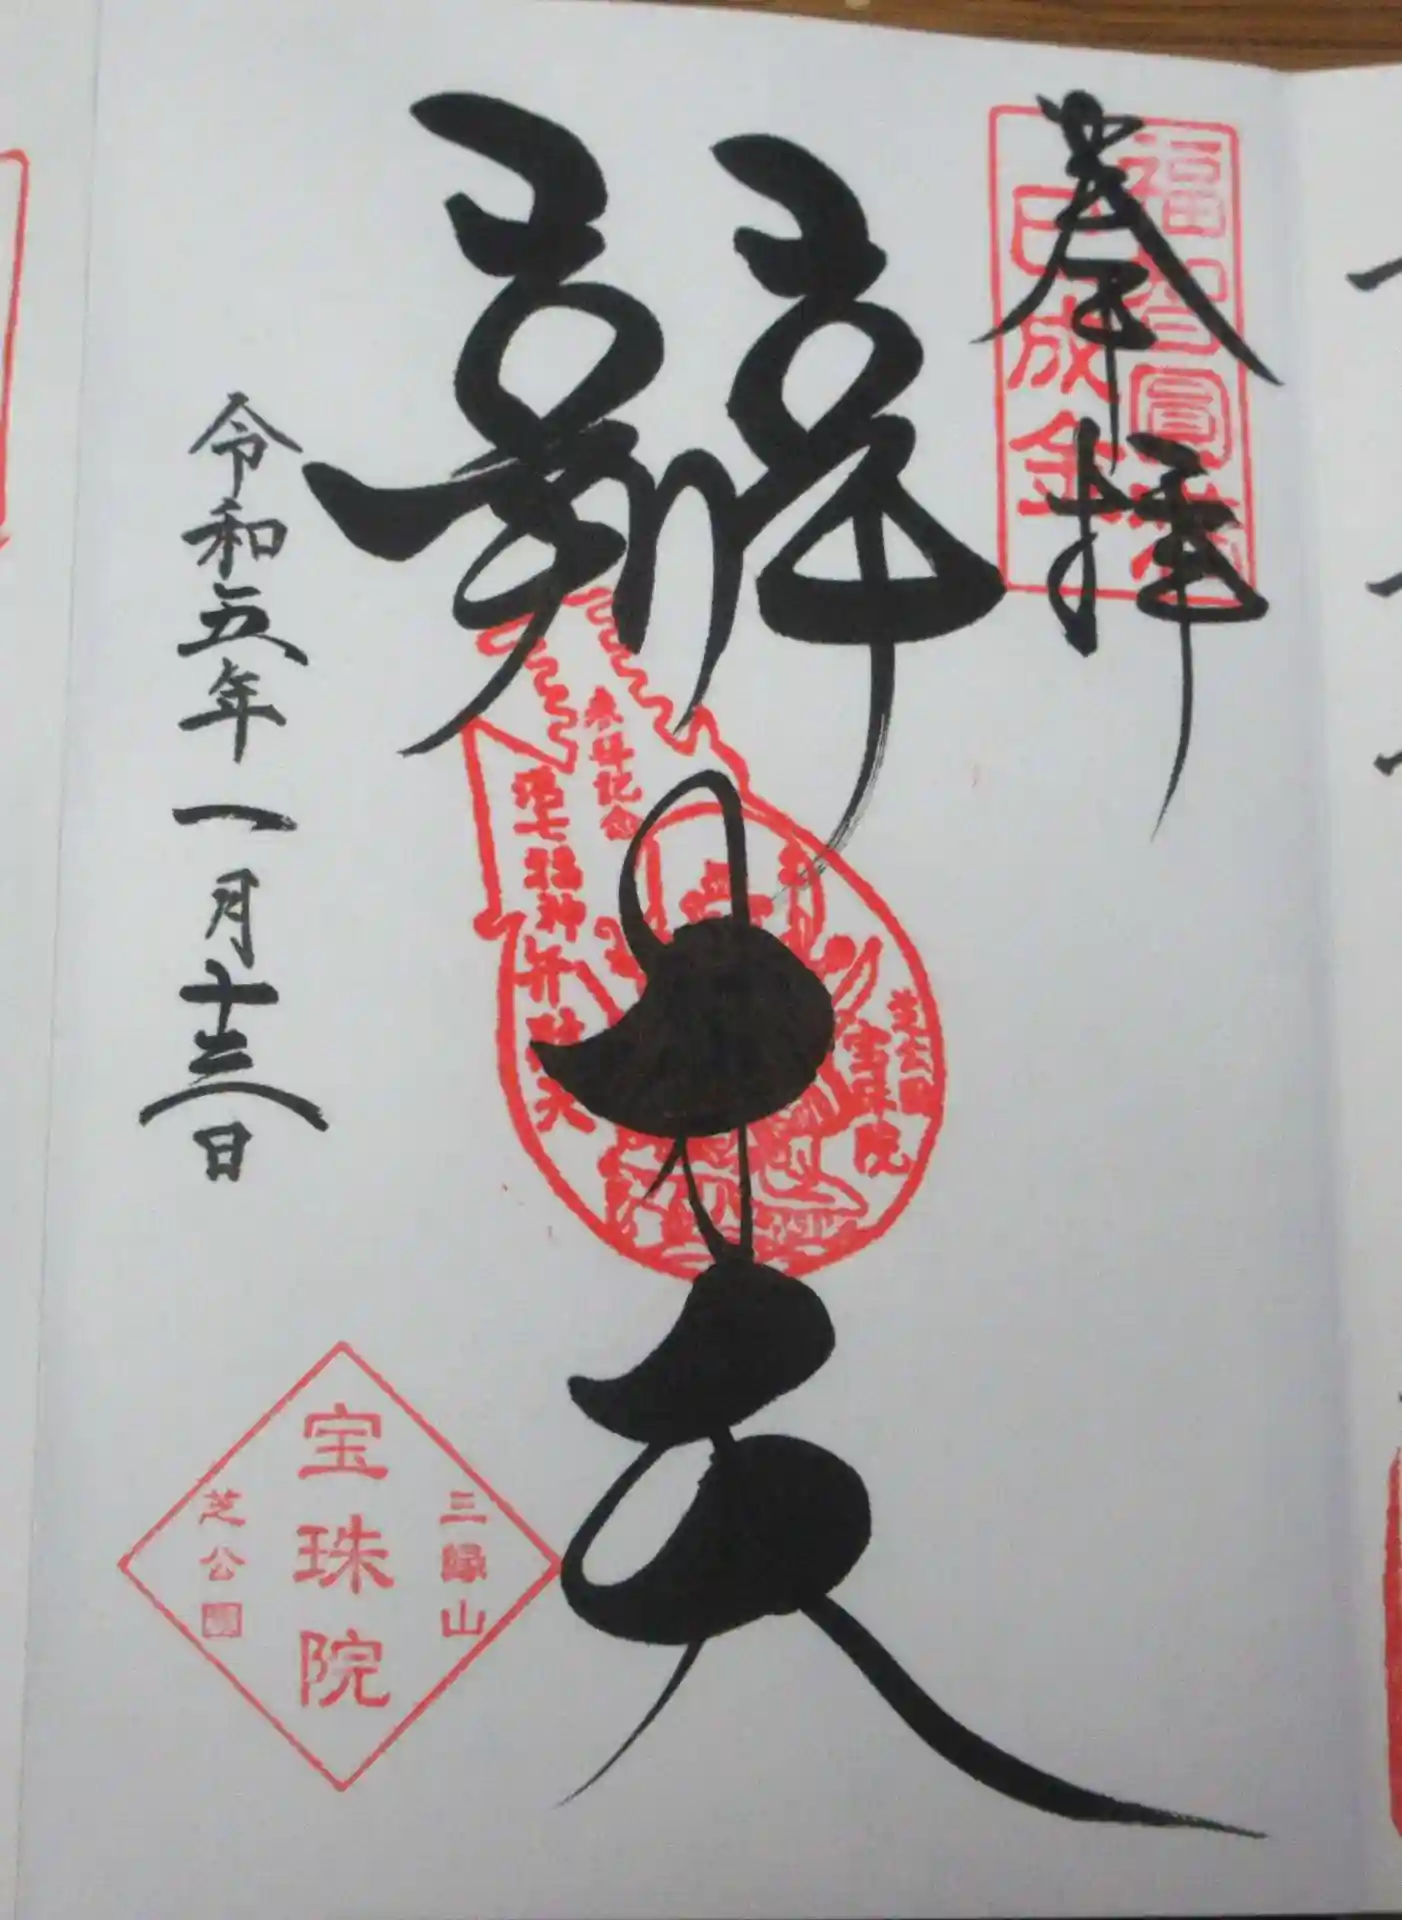 奉拝
福智圓満
巳成金
辯才天
参拝記念
港七福神弁財天
芝公園
宝珠院
令和五年一月十三日
三縁山
宝珠院
芝公園